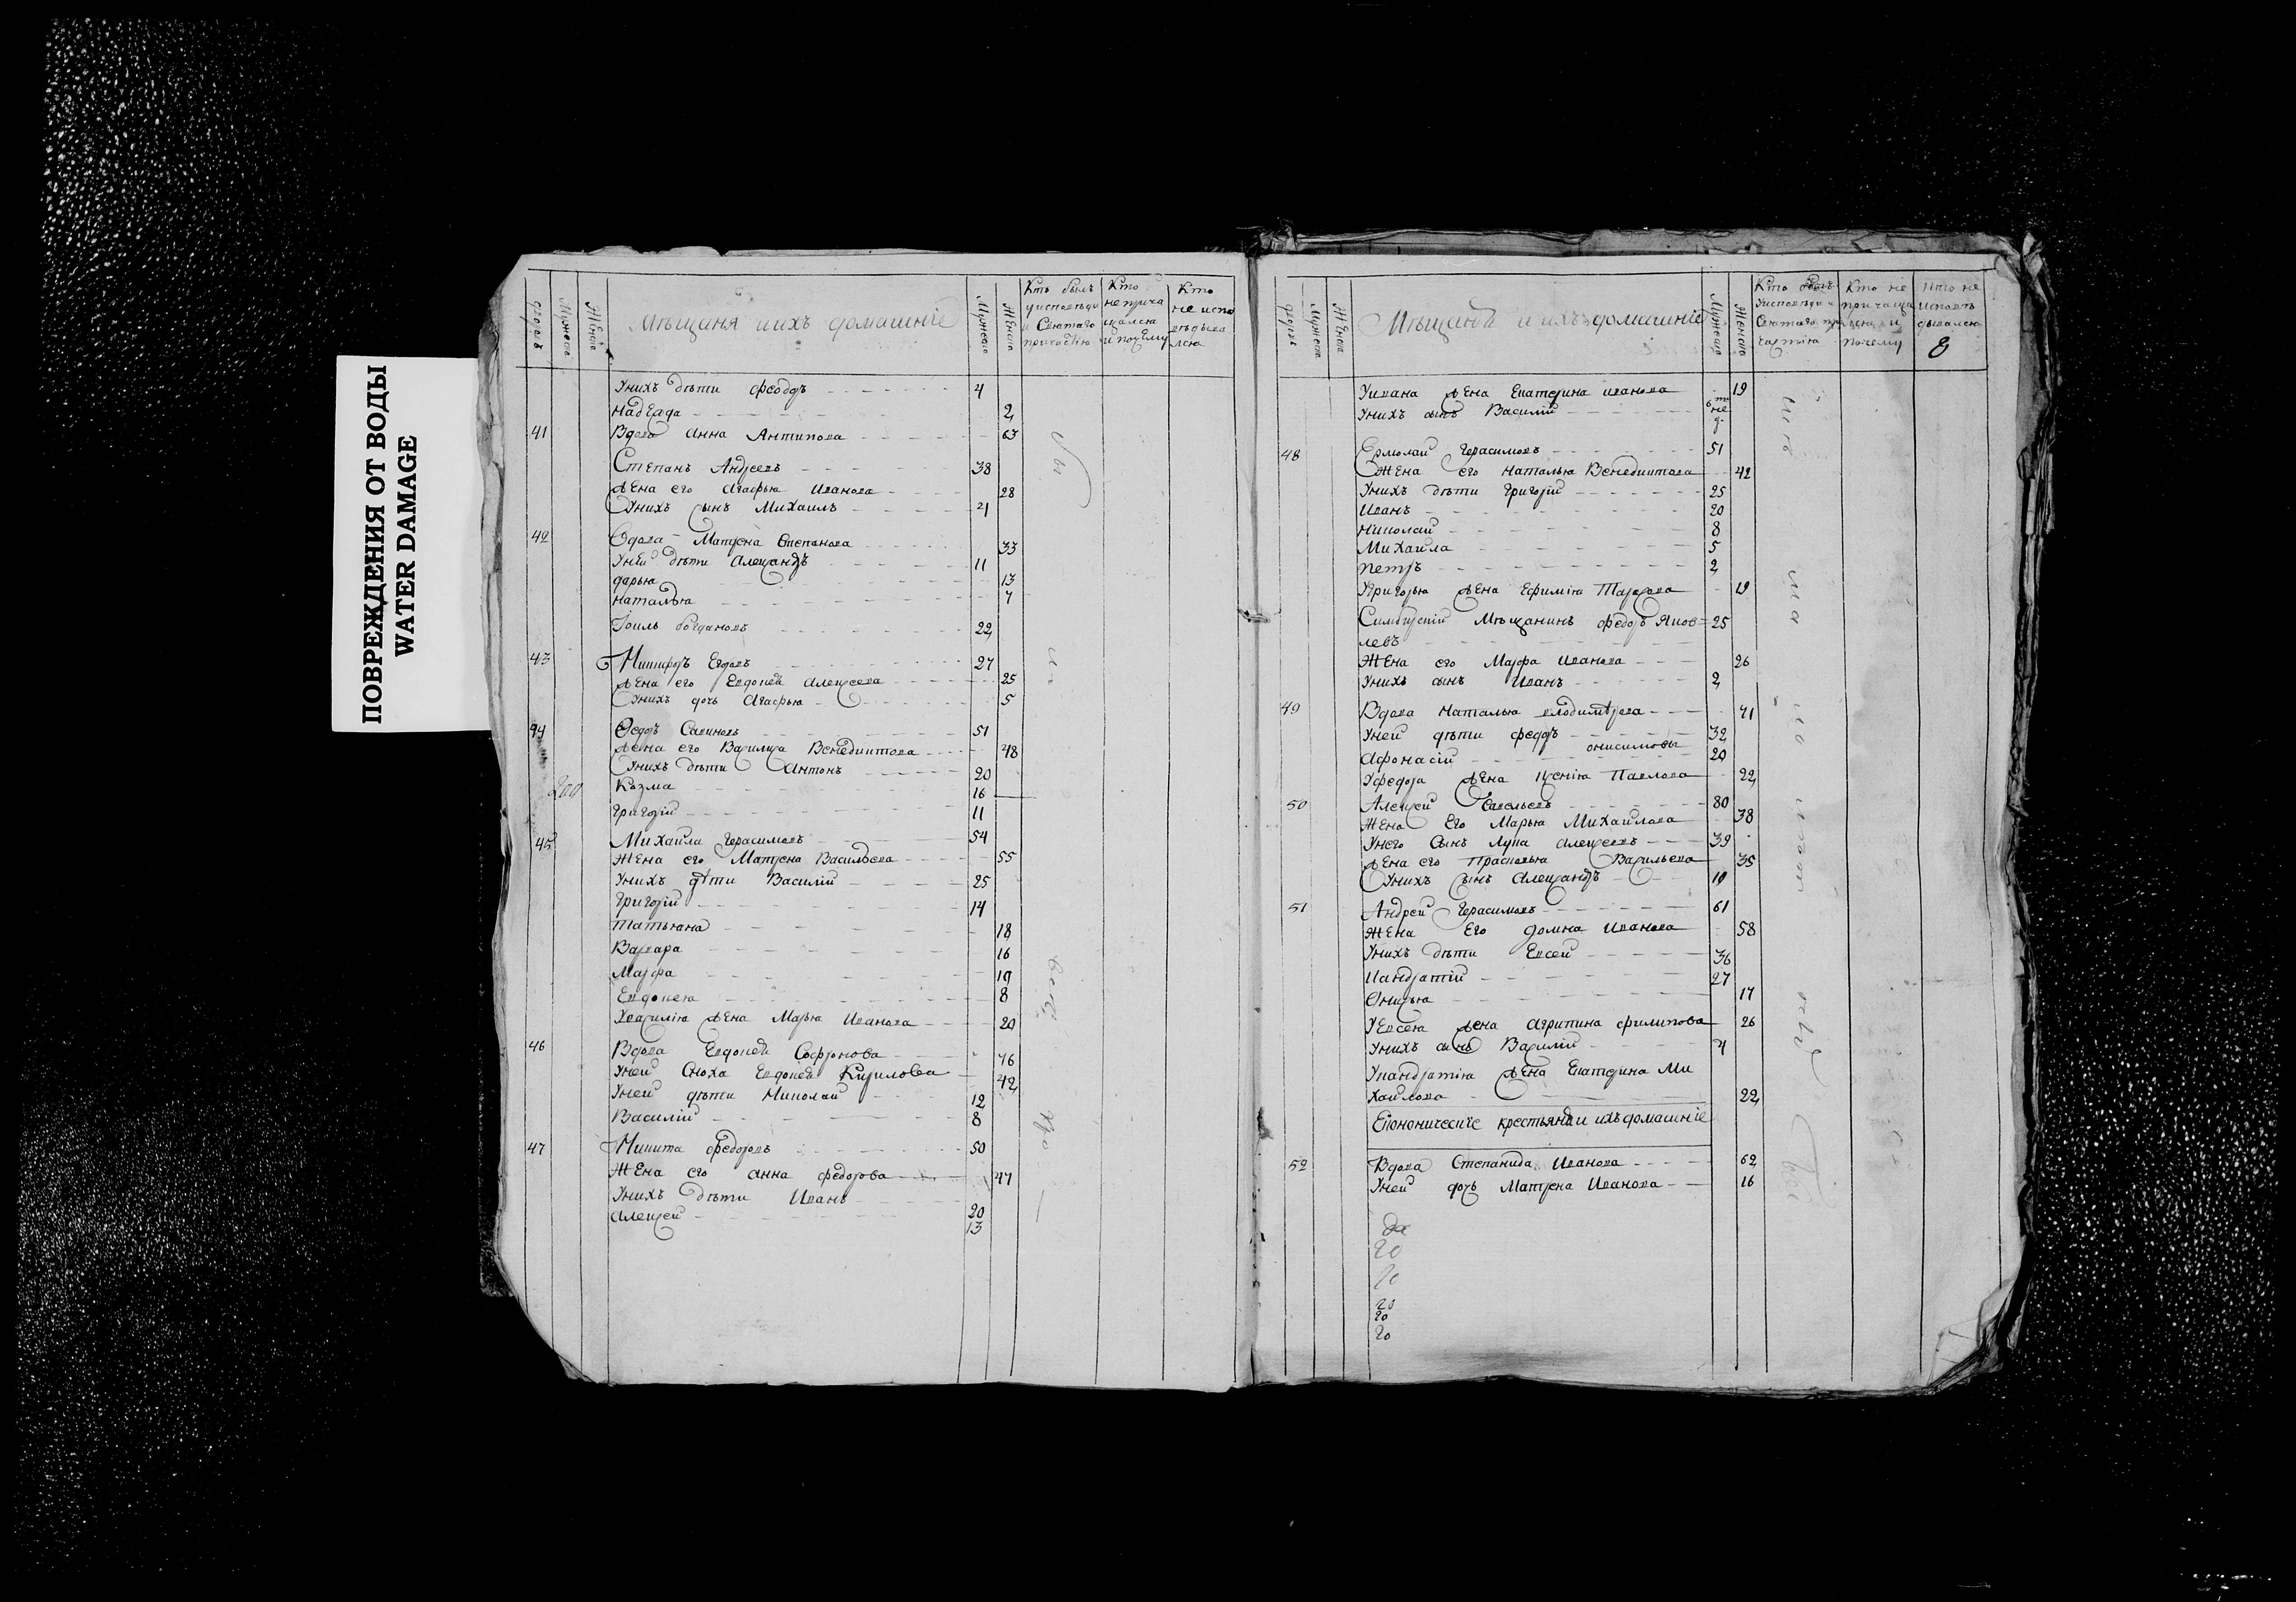 ПОВРЕЖДЕНИЯ ОТ ВОДЫ
WATER DAMAGE
Мѣщаня иихъ домашніе
Кто былъ уисповѣди и Святаго причастія
Кто не причащался и почему
Кто не исповѣдывался
Унихъ дѣти Феодоръ 4
Надежда 2
41 Вдова Анна Антипова 63
Степанъ Андреевъ 38
Жена его Агафья Иванова 28
Унихъ сынъ Михаилъ 21
42 Вдова Матрена Степанова 33
Уней дѣти Александръ 11
Дарья 13
Наталья 7
Богдановъ 22
43 Никифоръ Егоровъ 27
Жена его Евдокея Алексеева 25
Унихъ дочь Агафья 5
44 Ѳедоръ Савиновъ 51
Жена его Василиса Венедиктова 48
Унихъ дѣти Антонъ 20
200 Козма 16
Григорій 11
45 Михаила Герасимовъ 54
Жена его Матрена Васильева 55
Унихъ дѣти Василій 25
Григорій 14
Татьяна 18
Варвара 16
Марфа 10
Евдокея 8
Увасилія Жена Марья Иванова 20
46 Вдова Евдокея Софронова 76
Уней сноха Евдокея Кирилова 42
Уней дѣти Николай 12
Василій 8
47 Никита Федоровъ 50
Жена его Анна Федорова 47
Унихъ дѣти Иванъ 20
Алексей 13
Мѣщаня и ихъ домашніе
Кто былъ Уисповѣди и Святаго причастія
Кто не причащался и почему
Кто не исповѣдывался
8
Уивана Жена Екатерина Иванова 19
Унихъ сынъ Василій
48 Ермолай Герасимовъ 51
Жена его Наталья Венедиктова 42
Унихъ дѣти Григорій 25
Иванъ 20
Николай 8
Михаила 5
Петръ 2
Угригорья Жена Ефимія 19
Симбирскій Мѣщанинъ Федоръ Яков= 25
левъ
Жена его Марфа Иванова 26
Унихъ сынъ Иванъ 2
49 Вдова Наталья Влодимѣрова 71
Уней дѣти Федоръ 32
онисимовы
Афонасій 20
Уфедора Жена Ксенія Павлова 22
50 Алексей Савельевъ 80
Жена Его Марья Михайлова 38
Унего Сынъ Лука Алексеевъ 39
Жена его Прасковья Васильева 35
Унихъ сынъ Александръ 10
51 Андрей Герасимовъ 61
Жена Его Домна Иванова 58
Унихъ дѣти Евсей 36
Кандратій 27
17
Уевсея Жена Агрипина Филипова 26
Унихъ сынъ Василій 4
Укандратія Жена Екатерина Ми
хайлова 22
Економическіе крестьяня и ихъ домашніе
52 Вдова Степанида Иванова 62
Уней дочь Матрена Иванова 16
20
20
20
20